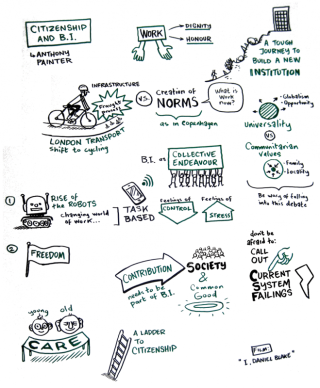 CITIZENSHIP
AND B.I.
ANTHONY
PAINTER
WORK
DIGNITY
HONOUR
A TOUGH
JOURNEY TO
BUILD A NEW
INSTITUTION
INFRASTRUCTURE
LONDON TRANSPORT
Shift to cycling
VS.
Creation of
NORMS
as in Copenhagen
What is
Work
now?
Globalism
Opportunity
Universality
VS
Communitarian
values
Family
Locality
Be wary of falling
into this debate
B.I. as
COLLECTIVE
ENDEAVOUR
1
RISE OF
the ROBOTS
changing world
of work...
TASK
BASED
Feelings of
CONTROL
Feelings of
STRESS
2
FREEDOM
CONTRIBUTION
needs to be
part of B.I.
SOCIETY
&
Common
Good
don't be
afraid to:
CALL
OUT
CURRENT
SYSTEM
FAILINGS
young old
CARE
A LADDER
TO
CITIZENSHIP
FILM:
"I, DANIEL BLAKE"